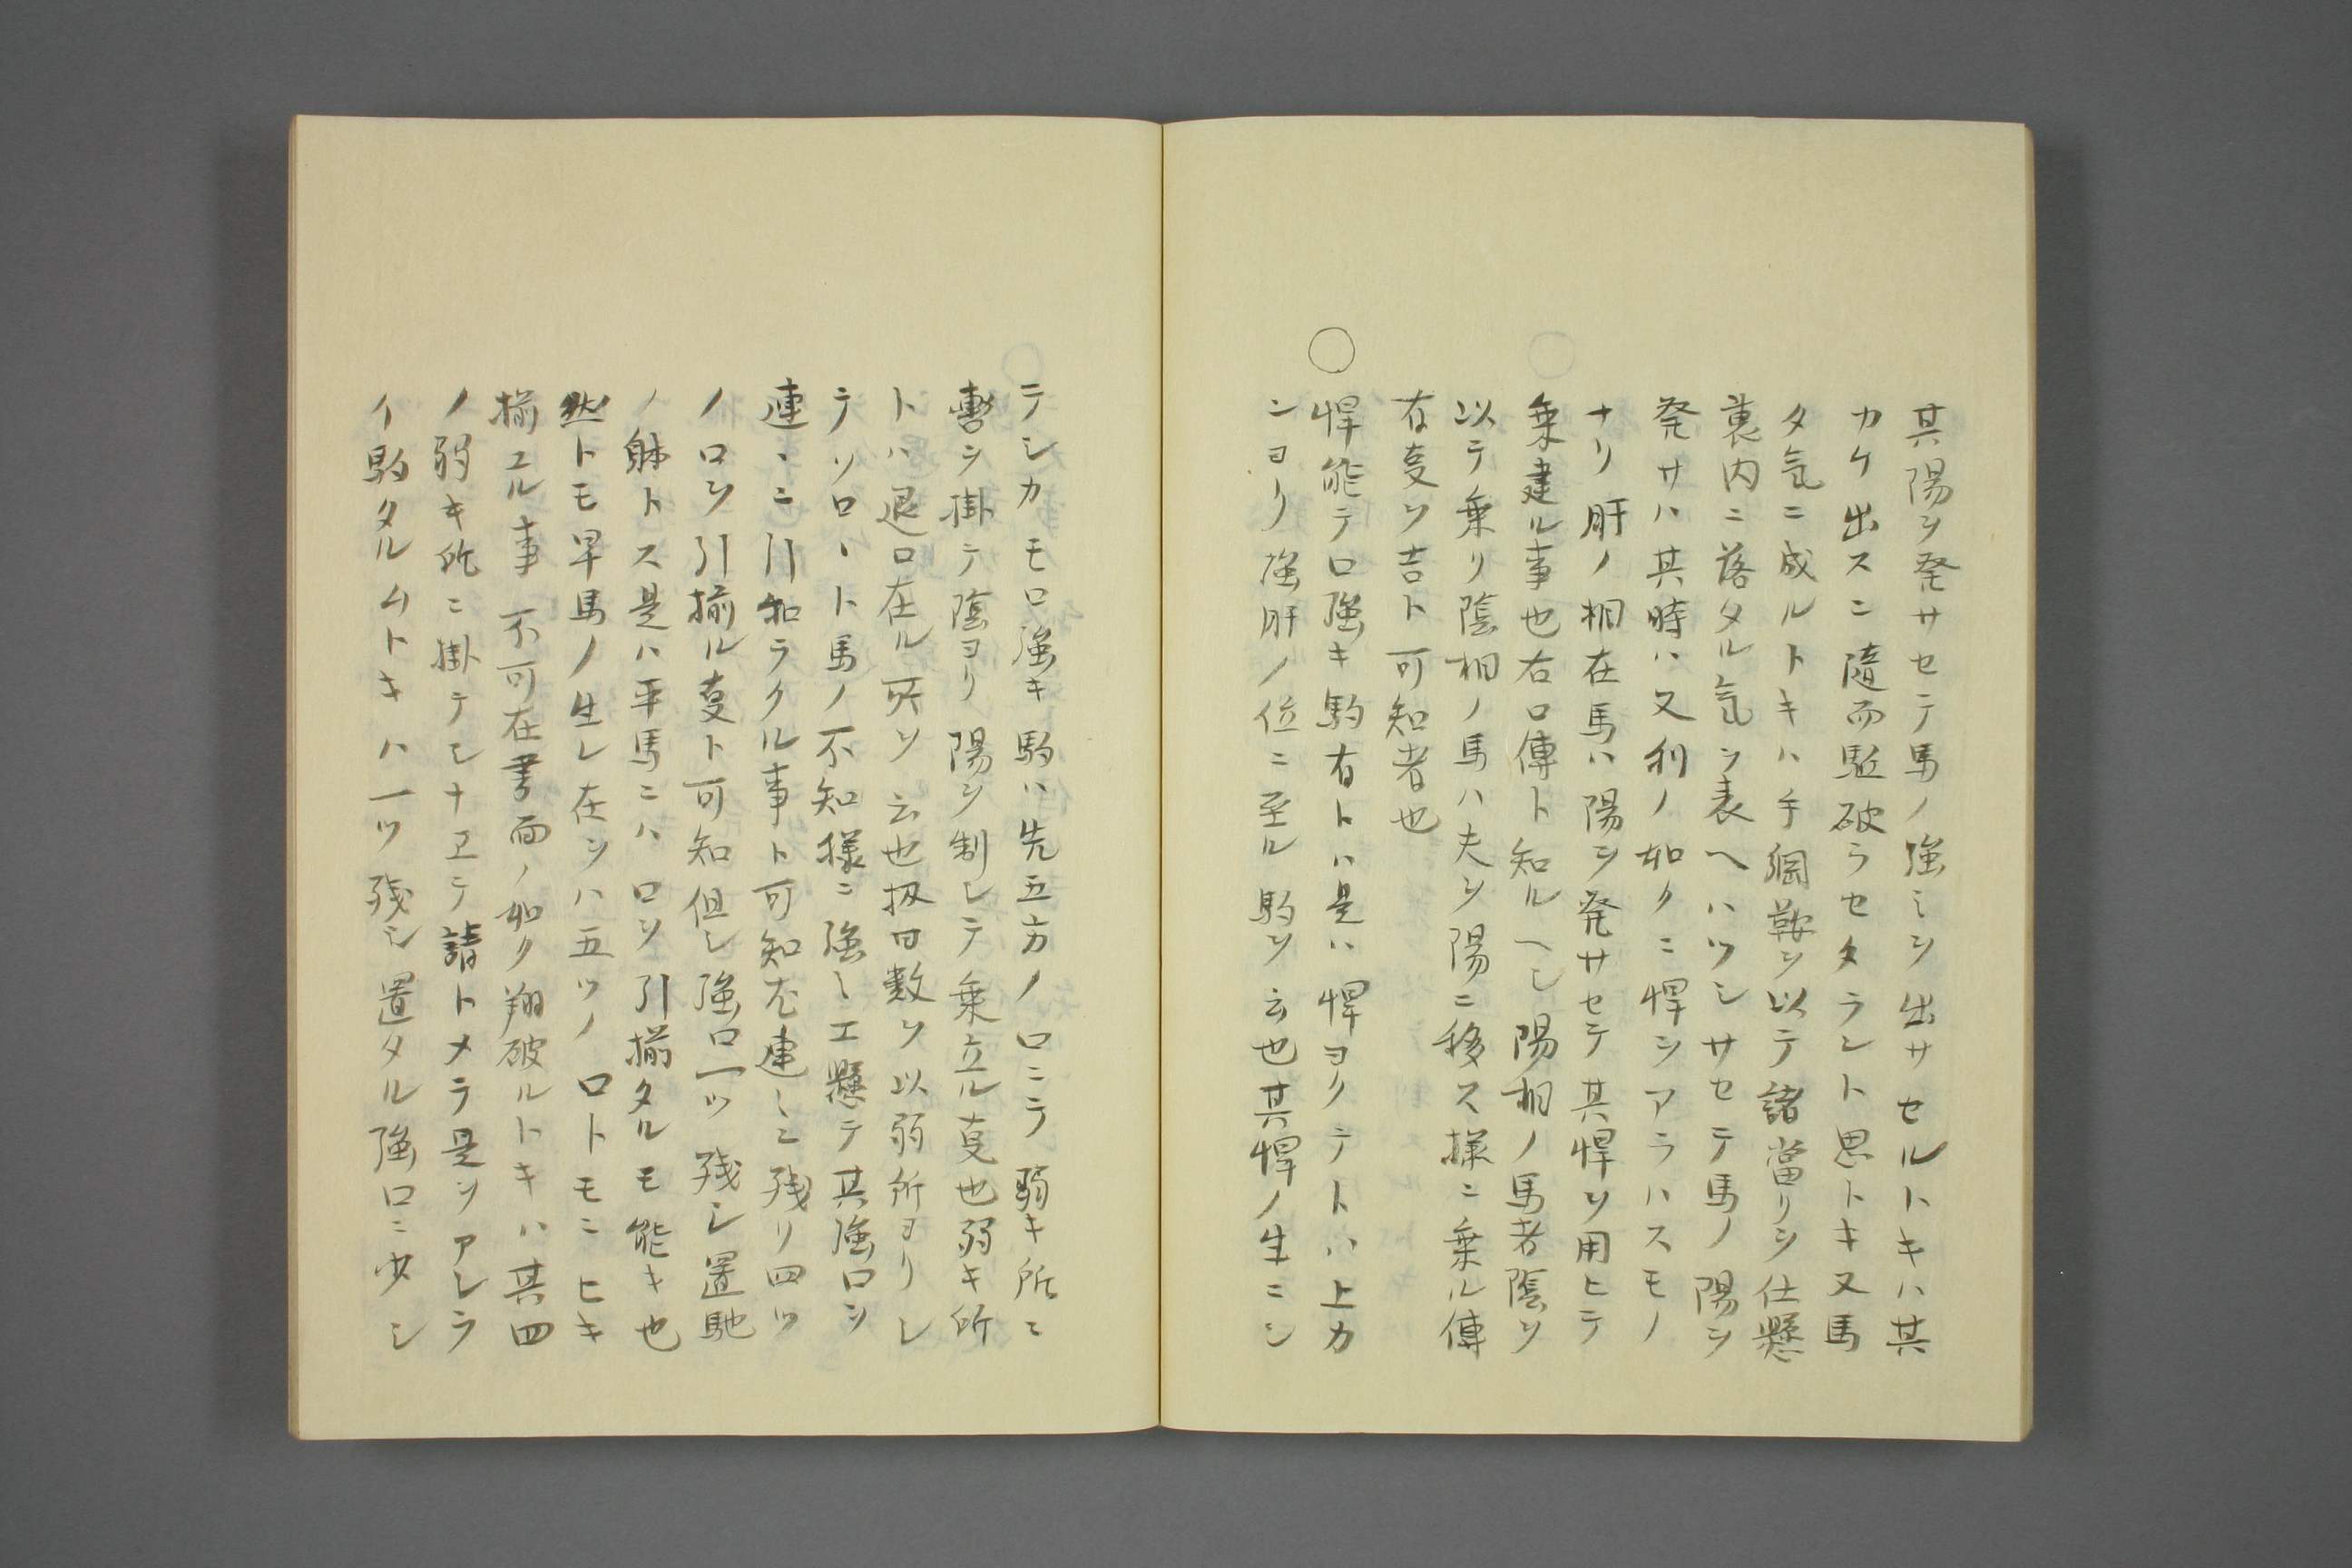 其陽ヲ発サセテ馬ノ強ミヲ出サセルトキハ其
カケ出スニ随而駈破ラセタラント思トキ又馬
タ気ニ成ルトキハ手綱鞍ヲ以テ諸當リヲ仕懸
裏内ニ落タル気ヲ表ヘハツシサセテ馬ノ陽ヲ
発サハ其時ハ又利ノ如クニ悍ヲアラハスモノ
ナリ肝ノ相在馬ハ陽ヲ発サセテ其悍ヲ用ヒテ
乗建ル事也右口傳ト知ルヘシ陽相ノ馬者陰ヲ
以テ乗リ陰相ノ馬ハ夫ヲ陽ニ移ス様ニ乗ル傳
有叓ヲ吉ト可知者也
○悍能テ口強キ駒有トハ是ハ悍ヨクテトハ上カ
ンヨリ強肝ノ位ニ至ル駒ヲ云也其悍ノ生ニシ
テシカモ口強キ駒ハ先五方ノ口ニテ弱キ所ニ
轡ヲ掛テ陰ヨリ陽ヲ制シテ乗立ル叓也弱キ所
トハ退口在ル所ヲ云也扱口数ヲ以弱所ヨリシ
テソロ〻ト馬ノ不知様ニ強ミエ懸テ其強口ヲ
連〻ニ引和ラクル事ト可知尤連〻ニ残リ四ツ
ノ口ヲ引揃ル叓ト可知但シ強口一ツ残シ置馳
ノ躰トス是ハ平馬ニハ口ヲ引揃タルモ能キ也
然トモ早馬ノ生レ在ヲハ五ツノ口トモニヒキ
揃エル事不可在書面ノ如ク翔破ルトキハ其四
ノ弱キ所ニ掛テシナヱテ請トメラ是ヲアシラ
イ駒タルムトキハ一ツ残シ置タル強口ニ少シ